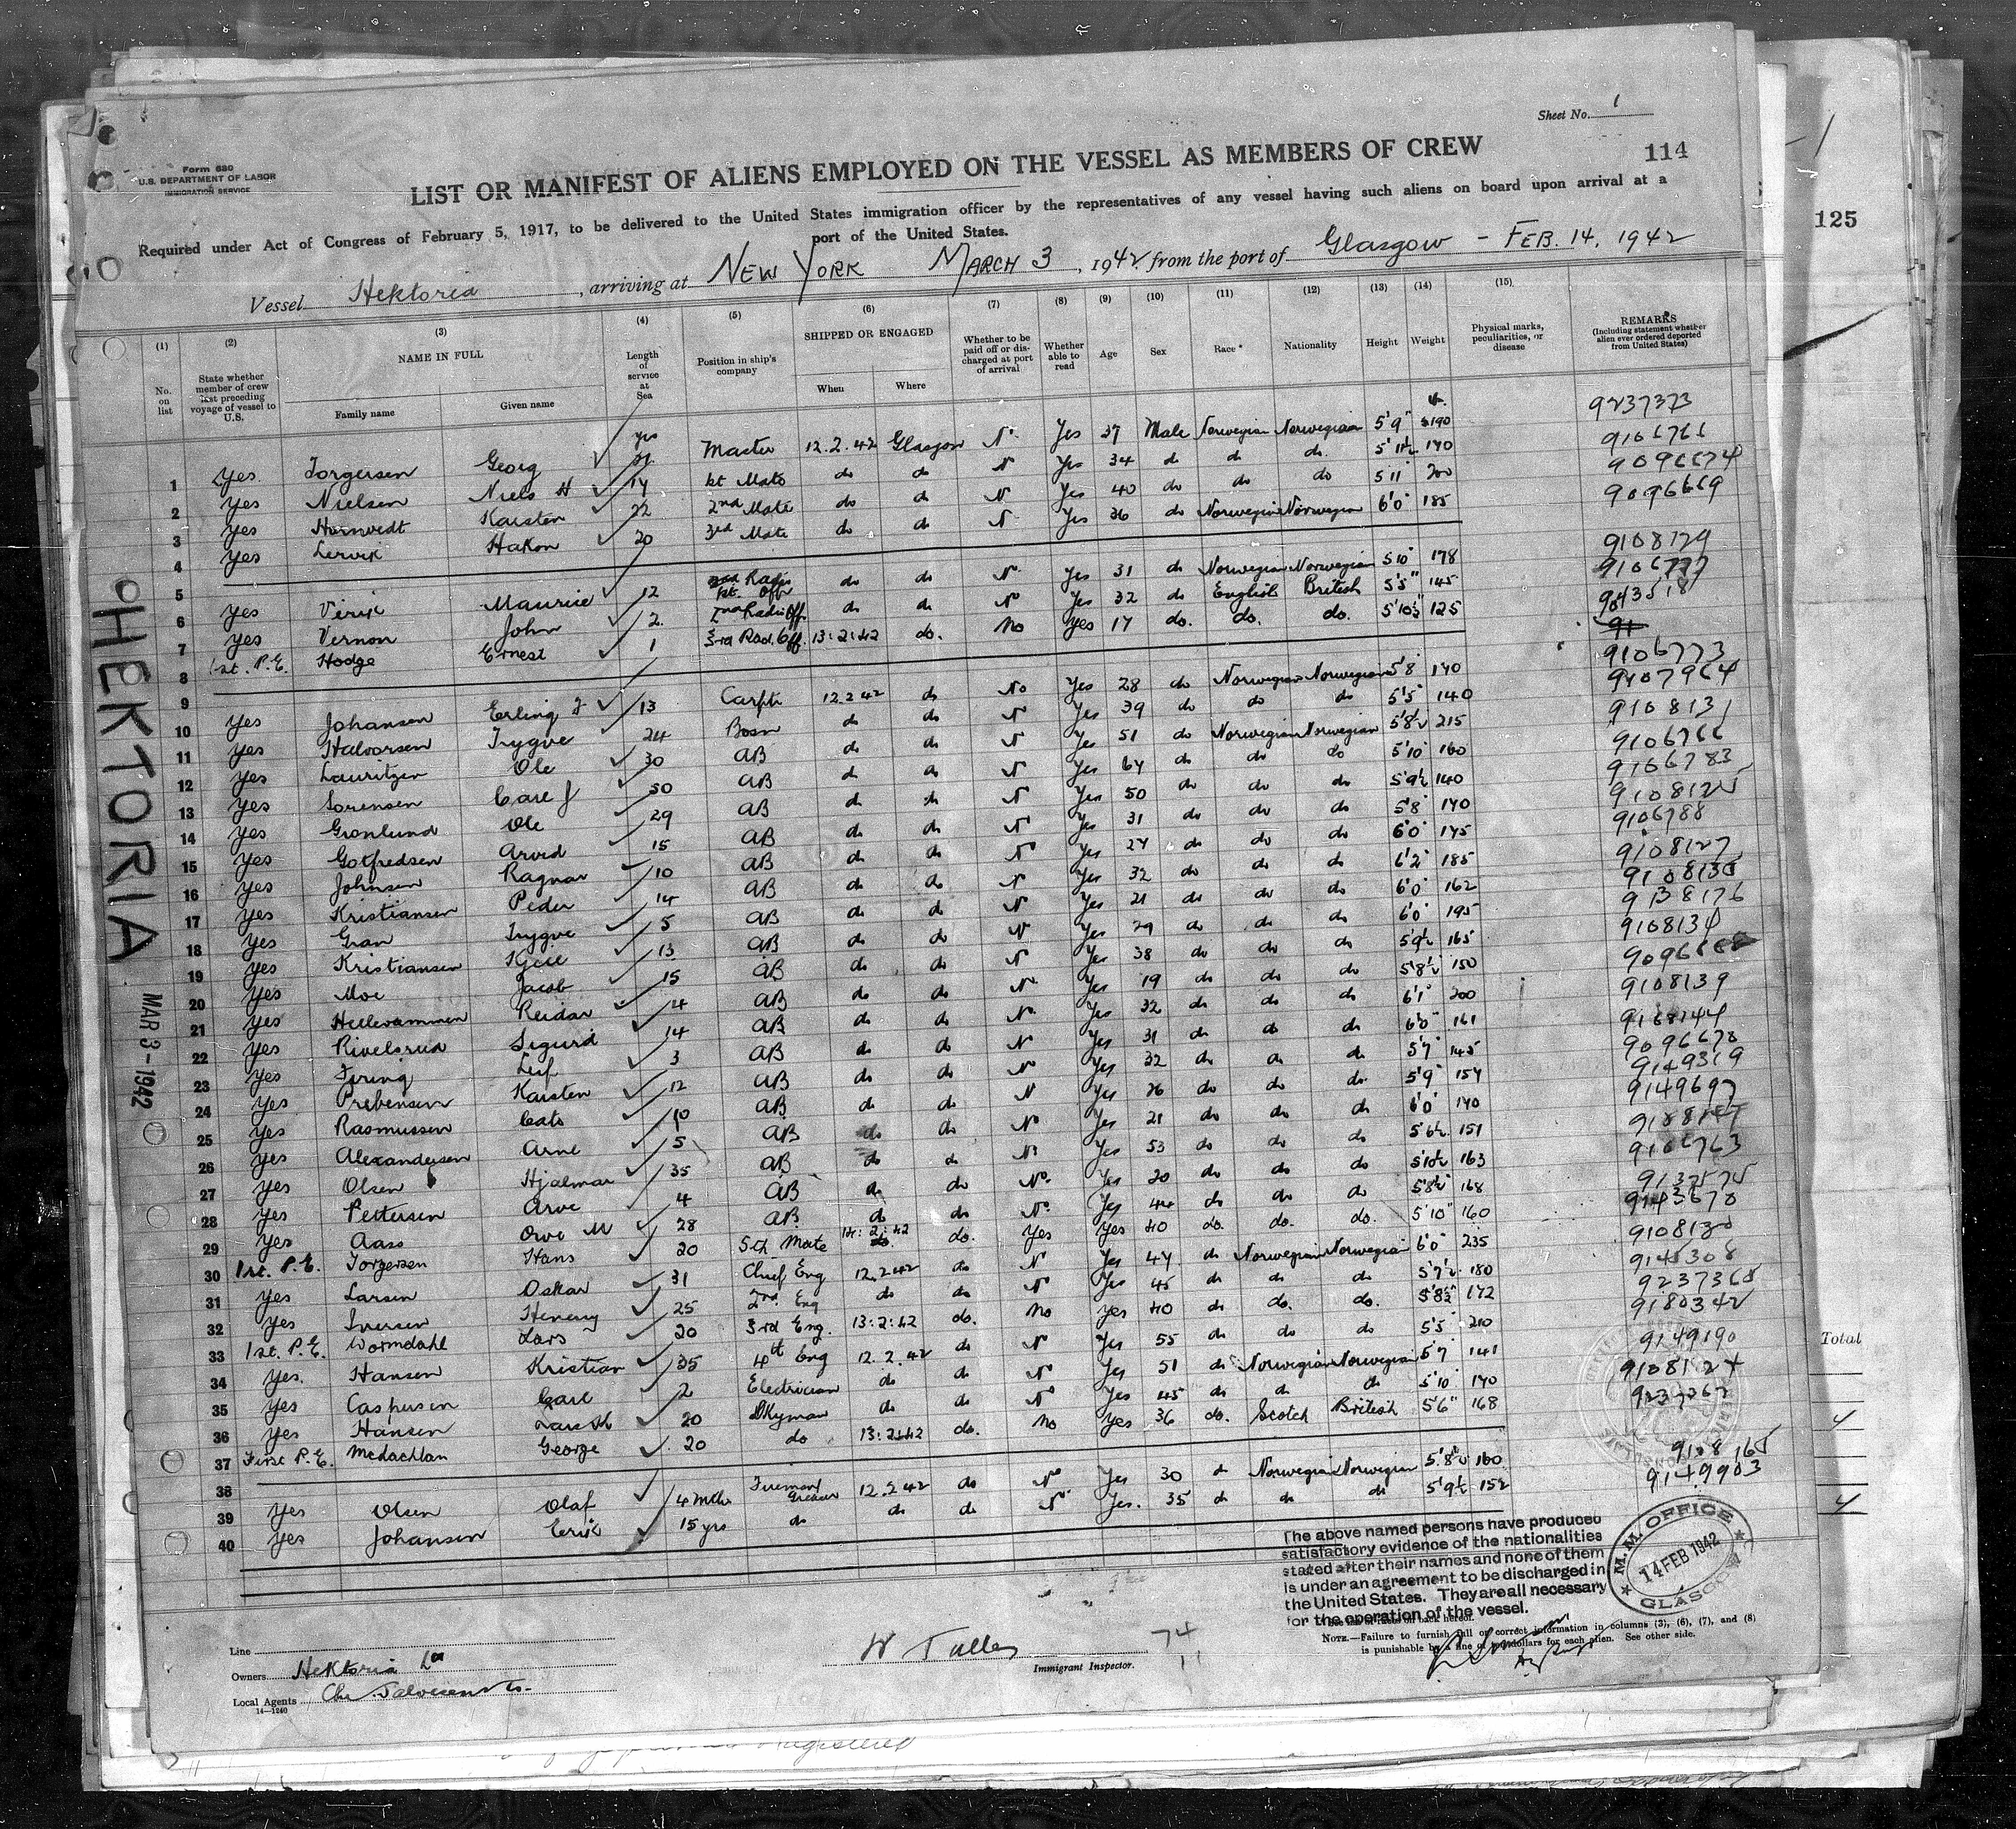 Sheet No. 1
114
125
Form 680
U.S. DEPARTMENT OF LABOR
IMMIGRATION SERVICE
LIST OR MANIFEST OF ALIENS EMPLOYED ON THE VESSEL AS MEMBERS OF CREW
Required under Act of Congress of February 5, 1917, to be delivered to the United States immigration officer by the representatives of any vessel having such aliens on board upon arrival at a
port of the United States.
Vessel Hektoria, arriving at NEW YORK MARCH 3, 1942 from the port of Glasgow - FEB. 14. 1942
(1) (2) (3) (4) (5) (6) (7) (8) (9) (10) (11) (12) (13) (14) (15)
No. on list
State whether member of crew last preceding voyage of vessel to U.S.
NAME IN FULL
Family name
Given name
Length of service at Sea
Position in ship's company
SHIPPED OR ENGAGED
When
Where
Whether to be paid off or discharged at port of arrival
Whether able to read
Age
Sex
Race *
Nationality
Height
Weight
Physical marks, peculiarities, or disease
REMARKS
(Including statement whether alien ever ordered deported from United States)
1 Yes Torgersen Georg Master 12.2.42 Glasgow No Yes 37 Male Norwegian Norwegian 5'9" 190 9237373
2 Yes Nielsen Niels H 14 1st Mate do do N Yes 34 do do do 5'11½ 170 9106766
3 Yes Karsten 22 2nd Mate do do N Yes 40 do do do 5'11" 200 9096674
4 Yes Lervik Hakon 20 3rd Mate do do N Yes 36 do Norwegian Norwegian 6'0" 185 9096669
5
6 Yes Maurice 12 1st. Offr do do No Yes 31 do Norwegian Norwegian 5'10" 178 9108129
7 Yes Vernon John 2 2nd Radio Off. do do No Yes 32 do English British 5'5" 145
8 1st. P.E. Hodge Ernest 1 3rd Rad. Off. 13:2:42 do. No Yes 17 do. do. do. 5'10½ 125
9
10 Yes Johansen Erling J 13 Carptr 12.2.42 do No Yes 28 do Norwegian Norwegian 5'8" 170 9106773
11 Yes Halvorsen Trygve 24 Bosn do do N Yes 39 do do do 5'5" 140 9107964
12 Yes Lauritzen Ole 30 AB do do N Yes 51 do Norwegian Norwegian 5'8½ 215 9108131
13 Yes Sorensen Carl J 50 AB do do N Yes 64 do do do 5'10" 160 9106766
14 Yes Gronlund Ole 29 AB do do N Yes 50 do do do 5'9½ 140 9106783
15 Yes Gotfredsen Arvid 15 AB do do N Yes 31 do do do 5'8" 170 9108125
16 Yes Johnsen Ragnar 10 AB do do No Yes 27 do do do 6'0" 175 9106788
17 Yes Kristiansen Peder 14 AB do do N Yes 32 do do do 6'2" 185 9108127
18 Yes Gran Trygve 5 AB do do N Yes 21 do do do 6'0" 162
19 Yes Kristiansen Kjell 13 AB do do N Yes 29 do do do 6'0" 195 9138176
20 Yes Moe Jacob 15 AB do do N Yes 38 do do do 5'9½ 165 9108134
21 Yes Hellevammen Reidar 4 AB do do N Yes 19 do do do 5'8½ 150
22 Yes Rivelsrud Sigurd 14 AB do do N Yes 32 do do do 6'1" 200 9108139
23 Yes Leif 3 AB do do N Yes 31 do do do 6'0" 161
24 Yes Prebensen Karsten 12 AB do do No Yes 32 do do do 5'7" 145 9096678
25 Yes Rasmussen Cato 10 AB do do N Yes 26 do do do. 5'9" 154 9149319
26 Yes Alexandersen Arne 5 AB do do No Yes 21 do do do 6'0" 170 9149697
27 Yes Olsen Hjalmar 35 AB do do No Yes 53 do do do 5'6½ 151
28 Yes Pettersen Arve 4 AB do do No. Yes 20 do do do 5'10½ 163 9106763
29 Yes Aass Ove M 28 AB do do No. Yes 44 do do do 5'8½ 168 9137575
30 1st. P.E. Torgersen Hans 20 5th Mate 14:2:42 do. Yes Yes 40 do. do. do. 5'10" 160 9143670
31 Yes Larsen Oskar 31 Chief Eng 12.2.42 do N Yes 47 do Norwegian Norwegian 6'0" 235 9108130
32 Yes Iversen Henry 25 2nd Eng do do N Yes 45 do do do 5'7½ 180 9145308
33 1st. P.E. Wormdahl Lars 20 3rd Eng. 13:2:42 do. No Yes 40 do do. do. 5'8½ 172 9237368
34 Yes. Hansen Kristian 35 4th Eng 12.2.42 do N Yes 55 do do do 5'5" 210 9180342
35 Yes Caspersen Carl 2 Electrician do do N Yes 51 do Norwegian Norwegian 5'7" 141 9149190
36 Yes Hansen 20 Dkyman do do N Yes 45 do do do 5'10" 170 9108124
37 First P.E. McLachlan George 20 do 13:2:42 do. No Yes 36 do. Scotch British 5'6" 168
38
39 Yes Olsen Olaf 4 mths Fireman Greaser 12.2.42 do No Yes 30 do Norwegian Norwegian 5'8½ 160 9108165
40 Yes Johansen Erik 15 yrs do do do N Yes. 35 do do do 5'9½ 152 9149903
HEKTORIA
MAR 3-1942
Total
4
4
The above named persons have produced
satisfactory evidence of the nationalities
stated after their names and none of them
is under an agreement to be discharged in
the United States. They are all necessary
for the operation of the vessel.
M.M. OFFICE
14 FEB 1942
GLASGOW
NOTE.—Failure to furnish full or correct information in columns (3), (6), (7), and (8)
is punishable by a fine of ten dollars for each alien. See other side.
Line
Owners Hektoria Ld
Local Agents Chr. Salvesen & Co.
14—1240
Immigrant Inspector.
74
11